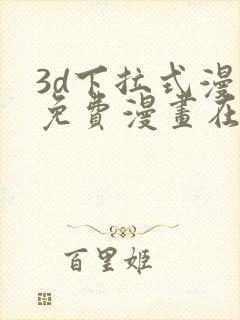 3d下拉式漫
免費漫畫在
百里姬